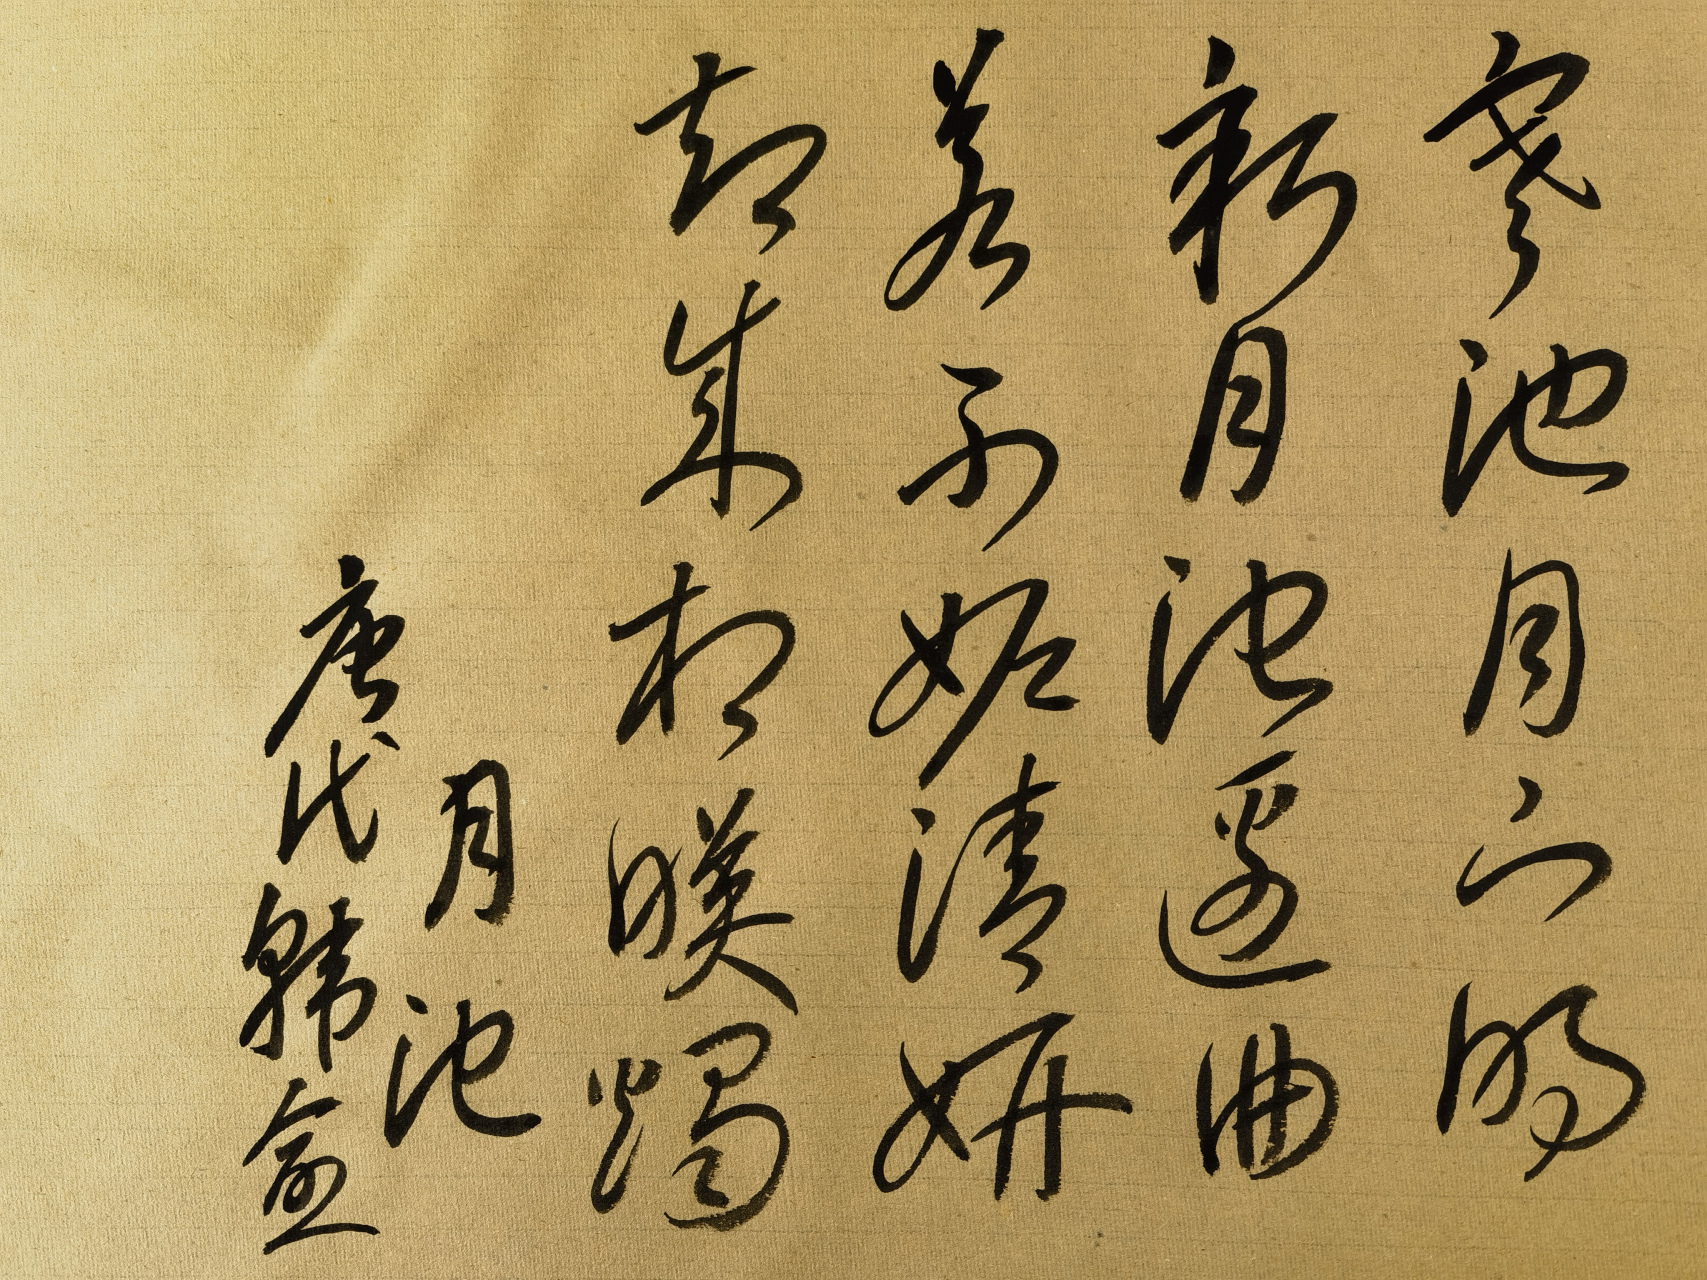 寒池月下明
新月池邊曲
若不妬清妍
却成相暎燭
月池
唐代韓愈